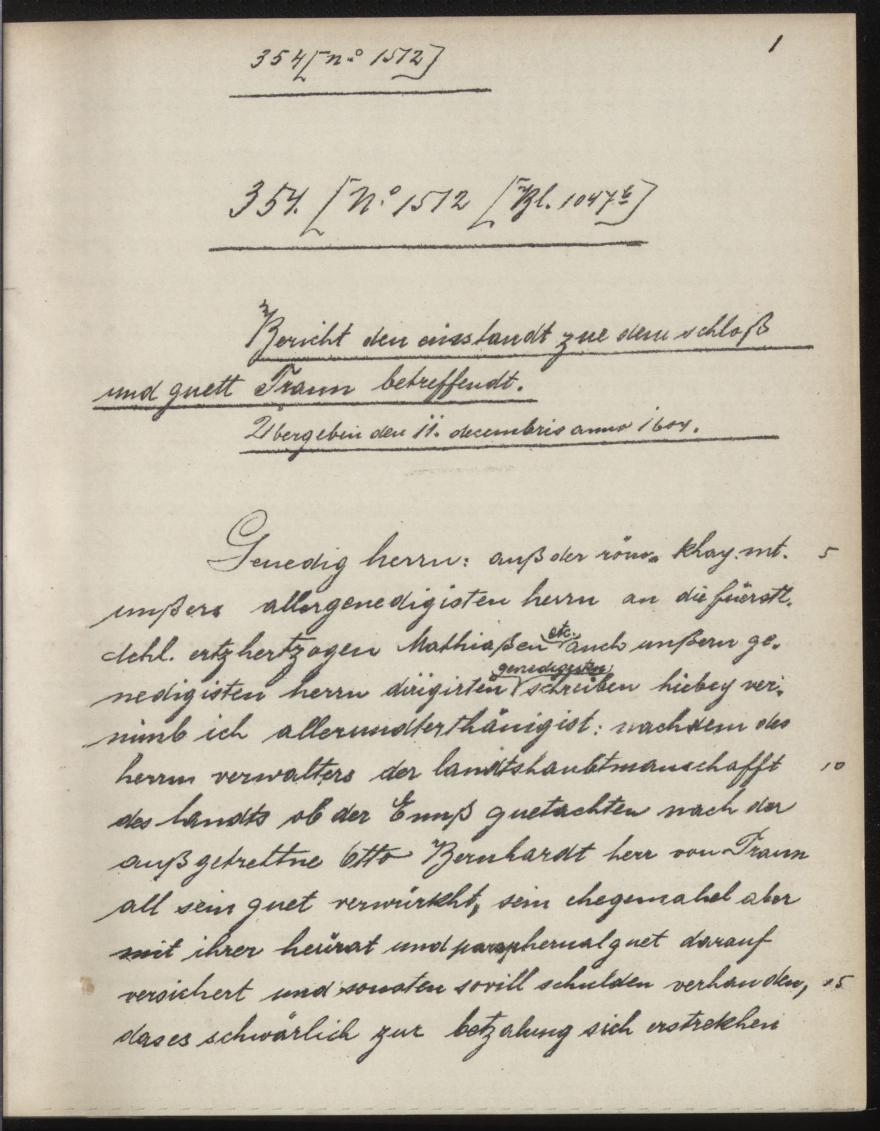 354 [N.o 1512]
1
354. [N.o 1512 [Bl. 1047b]
Bericht den einstandt zue dem schloß
und guett Traun betreffendt.
Übergeben den 11. decembris anno 1604.
Genedig herrn: auß der röm. khay. mt. 5
unßers allergenedigisten herrn an die fürstl.
dchl. ertzhertzogen Mathiaßen etc. auch unßern ge-
nedigisten herrn dirigirten genedigsten schreiben hiebey ver-
nimb ich allerundterthänigist: nachdem des
herrn verwalters der landtshaubtmanschafft 10
des landts ob der Ennß guetachten nach der
außgetrettne Otto Bernhardt herr von Traun
all sein guet verwürkht, sein ehegemahel aber
mit ihrer heürat und paraphernalguet darauf
versichert und sonsten sovill schulden verhanden, 15
das es schwärlich zur betzalung sich erstrekhen